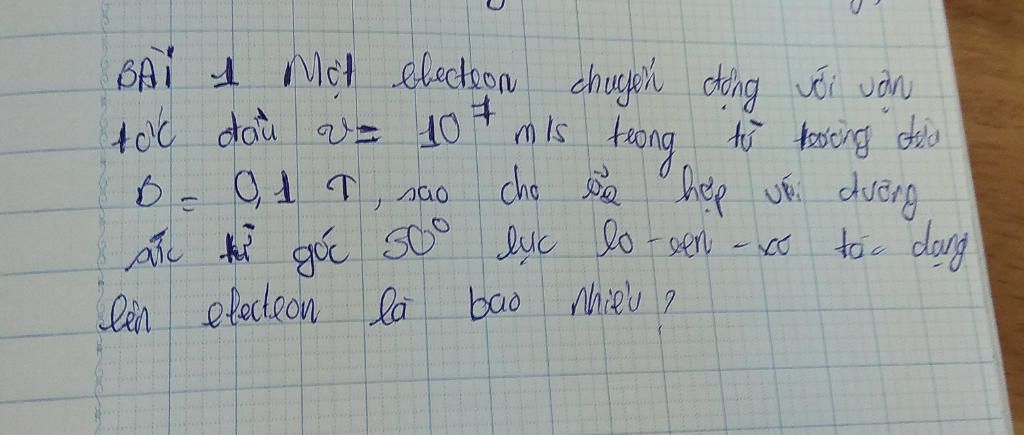 BÀI 1 Một electron chuyển động với vận
tốc đầu v = 10⁷ m/s trong từ trường đều
B = 0,1 T, sao cho hợp với đường
sức từ góc 50° lực lo-ren-xơ tác dụng
lên electron là bao nhiêu?